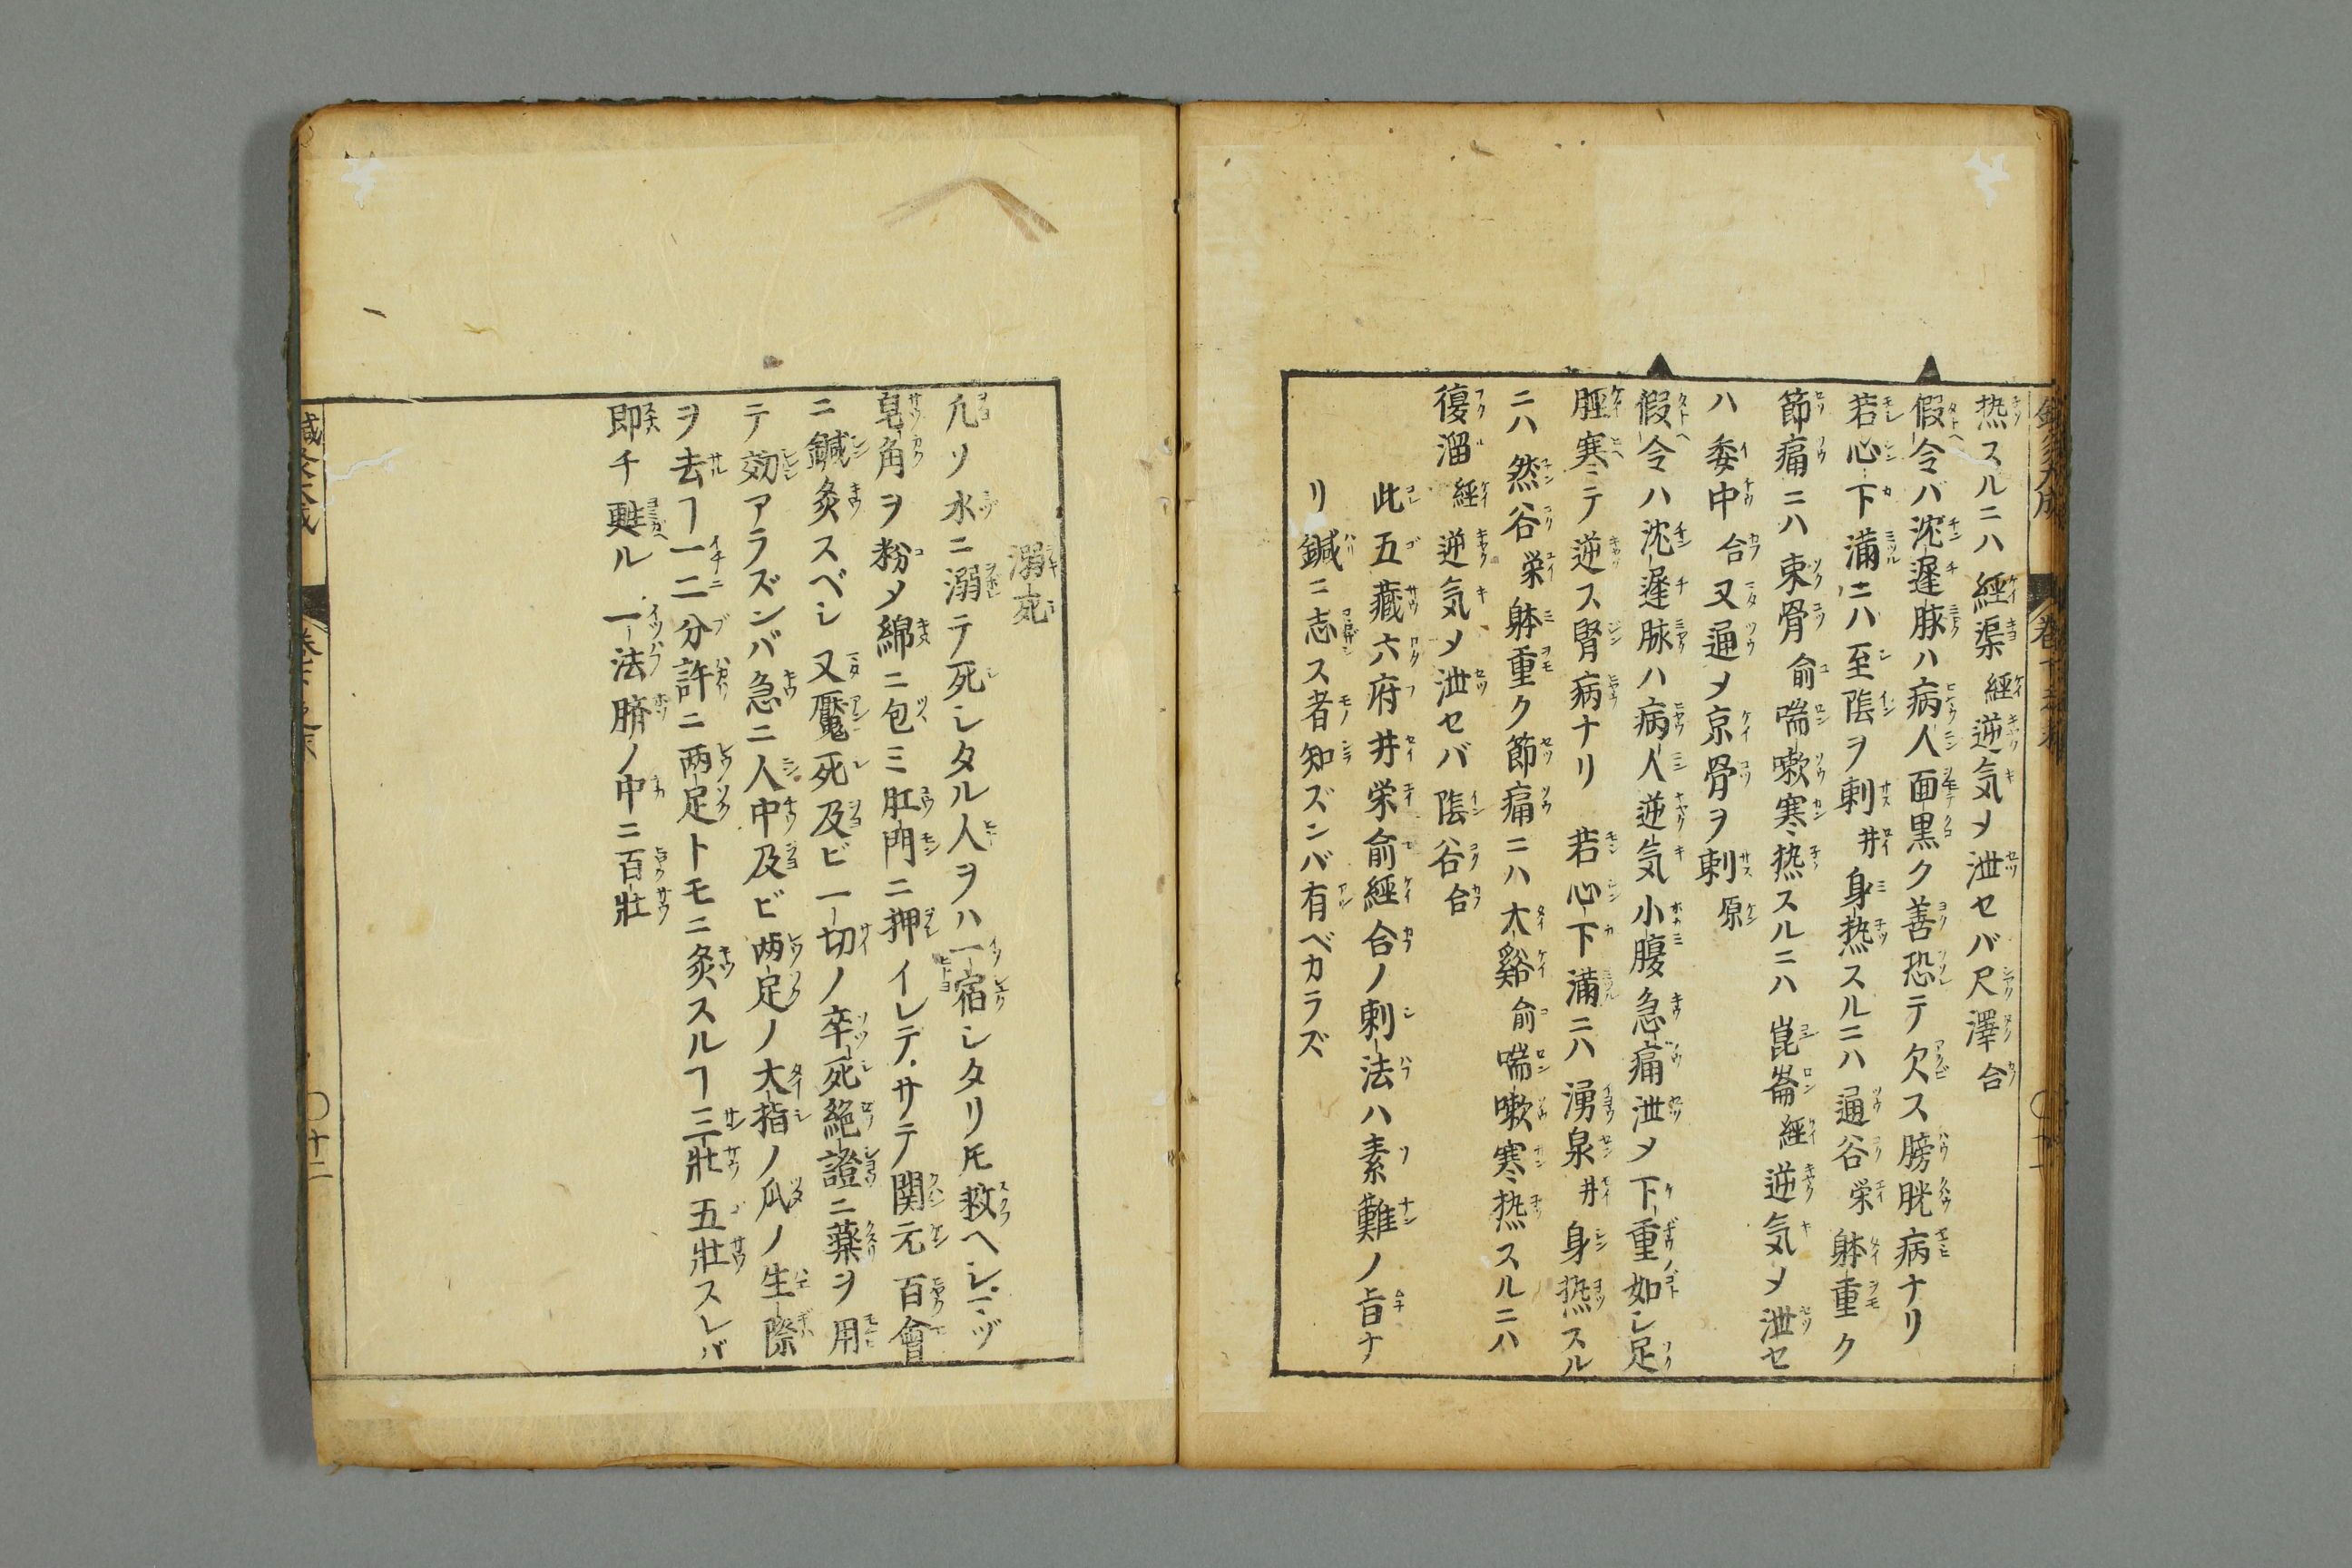 熱スルニハ 經渠 經 逆気メ泄セバ尺澤合
假令バ沈遲脉ハ病人面黒ク善恐テ欠ス膀胱病ナリ
若心下滿ニハ至隂ヲ刺 井 身熱スルニハ 通谷 栄 躰重ク
節痛ニハ 束骨 俞 喘嗽寒熱スルニハ 崑崙 經 逆気メ泄セ
ハ 委中 合 又通メ京骨ヲ刺 原
假令ハ沈遲脉ハ病人逆気小腹急痛泄メ下重如シ足
脛寒テ逆ス腎病ナリ 若心下滿ニハ 湧泉 井 身熱スル
ニハ 然谷 栄 躰重ク節痛ニハ 大谿 俞 喘嗽寒熱スルニハ
復溜 經 逆気メ泄セバ 隂谷 合
此五藏六府井栄俞經合ノ刺法ハ素難ノ旨ナ
リ鍼ニ志ス者知ズンバ有ベカラズ
溺死
凡ソ水ニ溺テ死シタル人ヲハ一宿シタリ𪜈救ヘシ
皂角ヲ粉メ綿ニ包ミ肛門ニ押イレテサテ関元 百會
ニ鍼灸スベシ 又魘死及ビ一切ノ卒死絶證ニ藥ヲ用
テ効アラズンバ急ニ人中及ビ両足ノ大指ノ爪ノ生際
ヲ去ヿ一二分許ニ両足トモニ灸スルヿ三壯 五壯スレバ
即チ甦ル 一法臍ノ中ニ百壯
十二